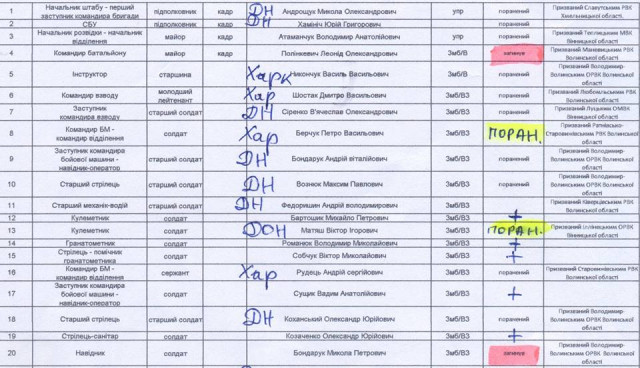 1 Начальник штабу - перший заступник командира бригади підполковник кадр ДН Андрощук Микола Олександрович упр поранений Призваний Славутським РВК Хмельницької області.
2 СБУ підполковник кадр ДН Хамініч Юрій Григорович поранений
3 Начальник розвідки - начальник відділення майор кадр Атаманчук Володимир Анатолійович упр поранений Призваний Теплицьким МВК Вінницької області
4 Командир батальйону майор кадр Полінкевич Леонід Олександрович 3мб/В загинув Призваний Маневицьким РВК Волинської області
5 Інструктор старшина Харк Никончук Василь Васильович 3мб/В поранений Призваний Володимир-Волинським ОРВК Волинської області
6 Командир взводу молодший лейтенант Хар Шостак Дмитро Васильович 3мб/ВЗ поранений Призваний Любомльським РВК Волинської області
7 Заступник командира взводу старший солдат ДН Сіренко В'ячеслав Олександрович 3мб/ВЗ поранений Призваний Луцьким ОМВК Волинської області
8 Командир БМ - командир відділення солдат Хар Берчук Петро Васильович 3мб/ВЗ ПОРАН. Призваний Ратнівсько-Старовижівським РВК Волинської області
9 Заступник командира бойової машини - навідник-оператор старший солдат ДН Бондарук Андрій віталійович 3мб/ВЗ поранений Призваний Володимир-Волинським ОРВК Волинської області
10 Старший стрілець старший солдат ДН Вознюк Максим Павлович 3мб/ВЗ поранений Призваний Володимир-Волинським ОРВК Волинської області
11 Старший механік-водій старший солдат ДН Федоришин Андрій Володимирович 3мб/ВЗ поранений Призваний Ківерцівським РВК Волинської області
12 Кулеметник солдат Бартошик Михайло Петрович 3мб/ВЗ +
13 Кулеметник солдат ДОН Матяш Віктор Ігорович 3мб/ВЗ ПОРАН. Призваний Іллінецьким ОРВК Вінницької області
14 Гранатометник солдат Романюк Володимир Миколайович 3мб/ВЗ +
15 Стрілець - помічник гранатометника солдат Собчук Віктор Миколайович 3мб/ВЗ +
16 Командир БМ - командир відділення сержант Хар Рудець Андрій сергійович 3мб/ВЗ поранений Призваний Старовижівським РВК Волинської області
17 Заступник командира бойової машини - навідник-оператор солдат Сущик Вадим Анатолійович 3мб/ВЗ +
18 Старший стрілець старший солдат ДН Коханський Олександр Юрійович 3мб/ВЗ поранений Призваний Володимир-Волинським ОРВК Волинської області
19 Стрілець-санітар солдат Козаченко Олександр Юрійович 3мб/ВЗ +
20 Навідник солдат Бондарук Микола Петрович 3мб/ВЗ загинув Призваний Володимир-Волинським ОРВК Волинської області